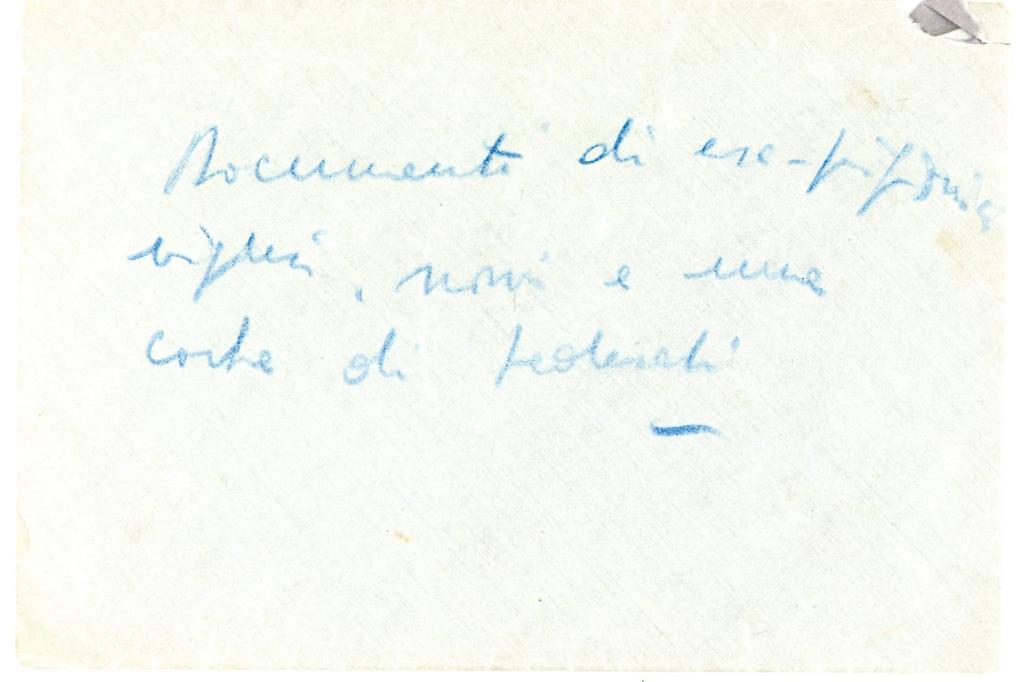 Documenti di ex-prigionie
inglesi, nomi e una
carta di tedeschi